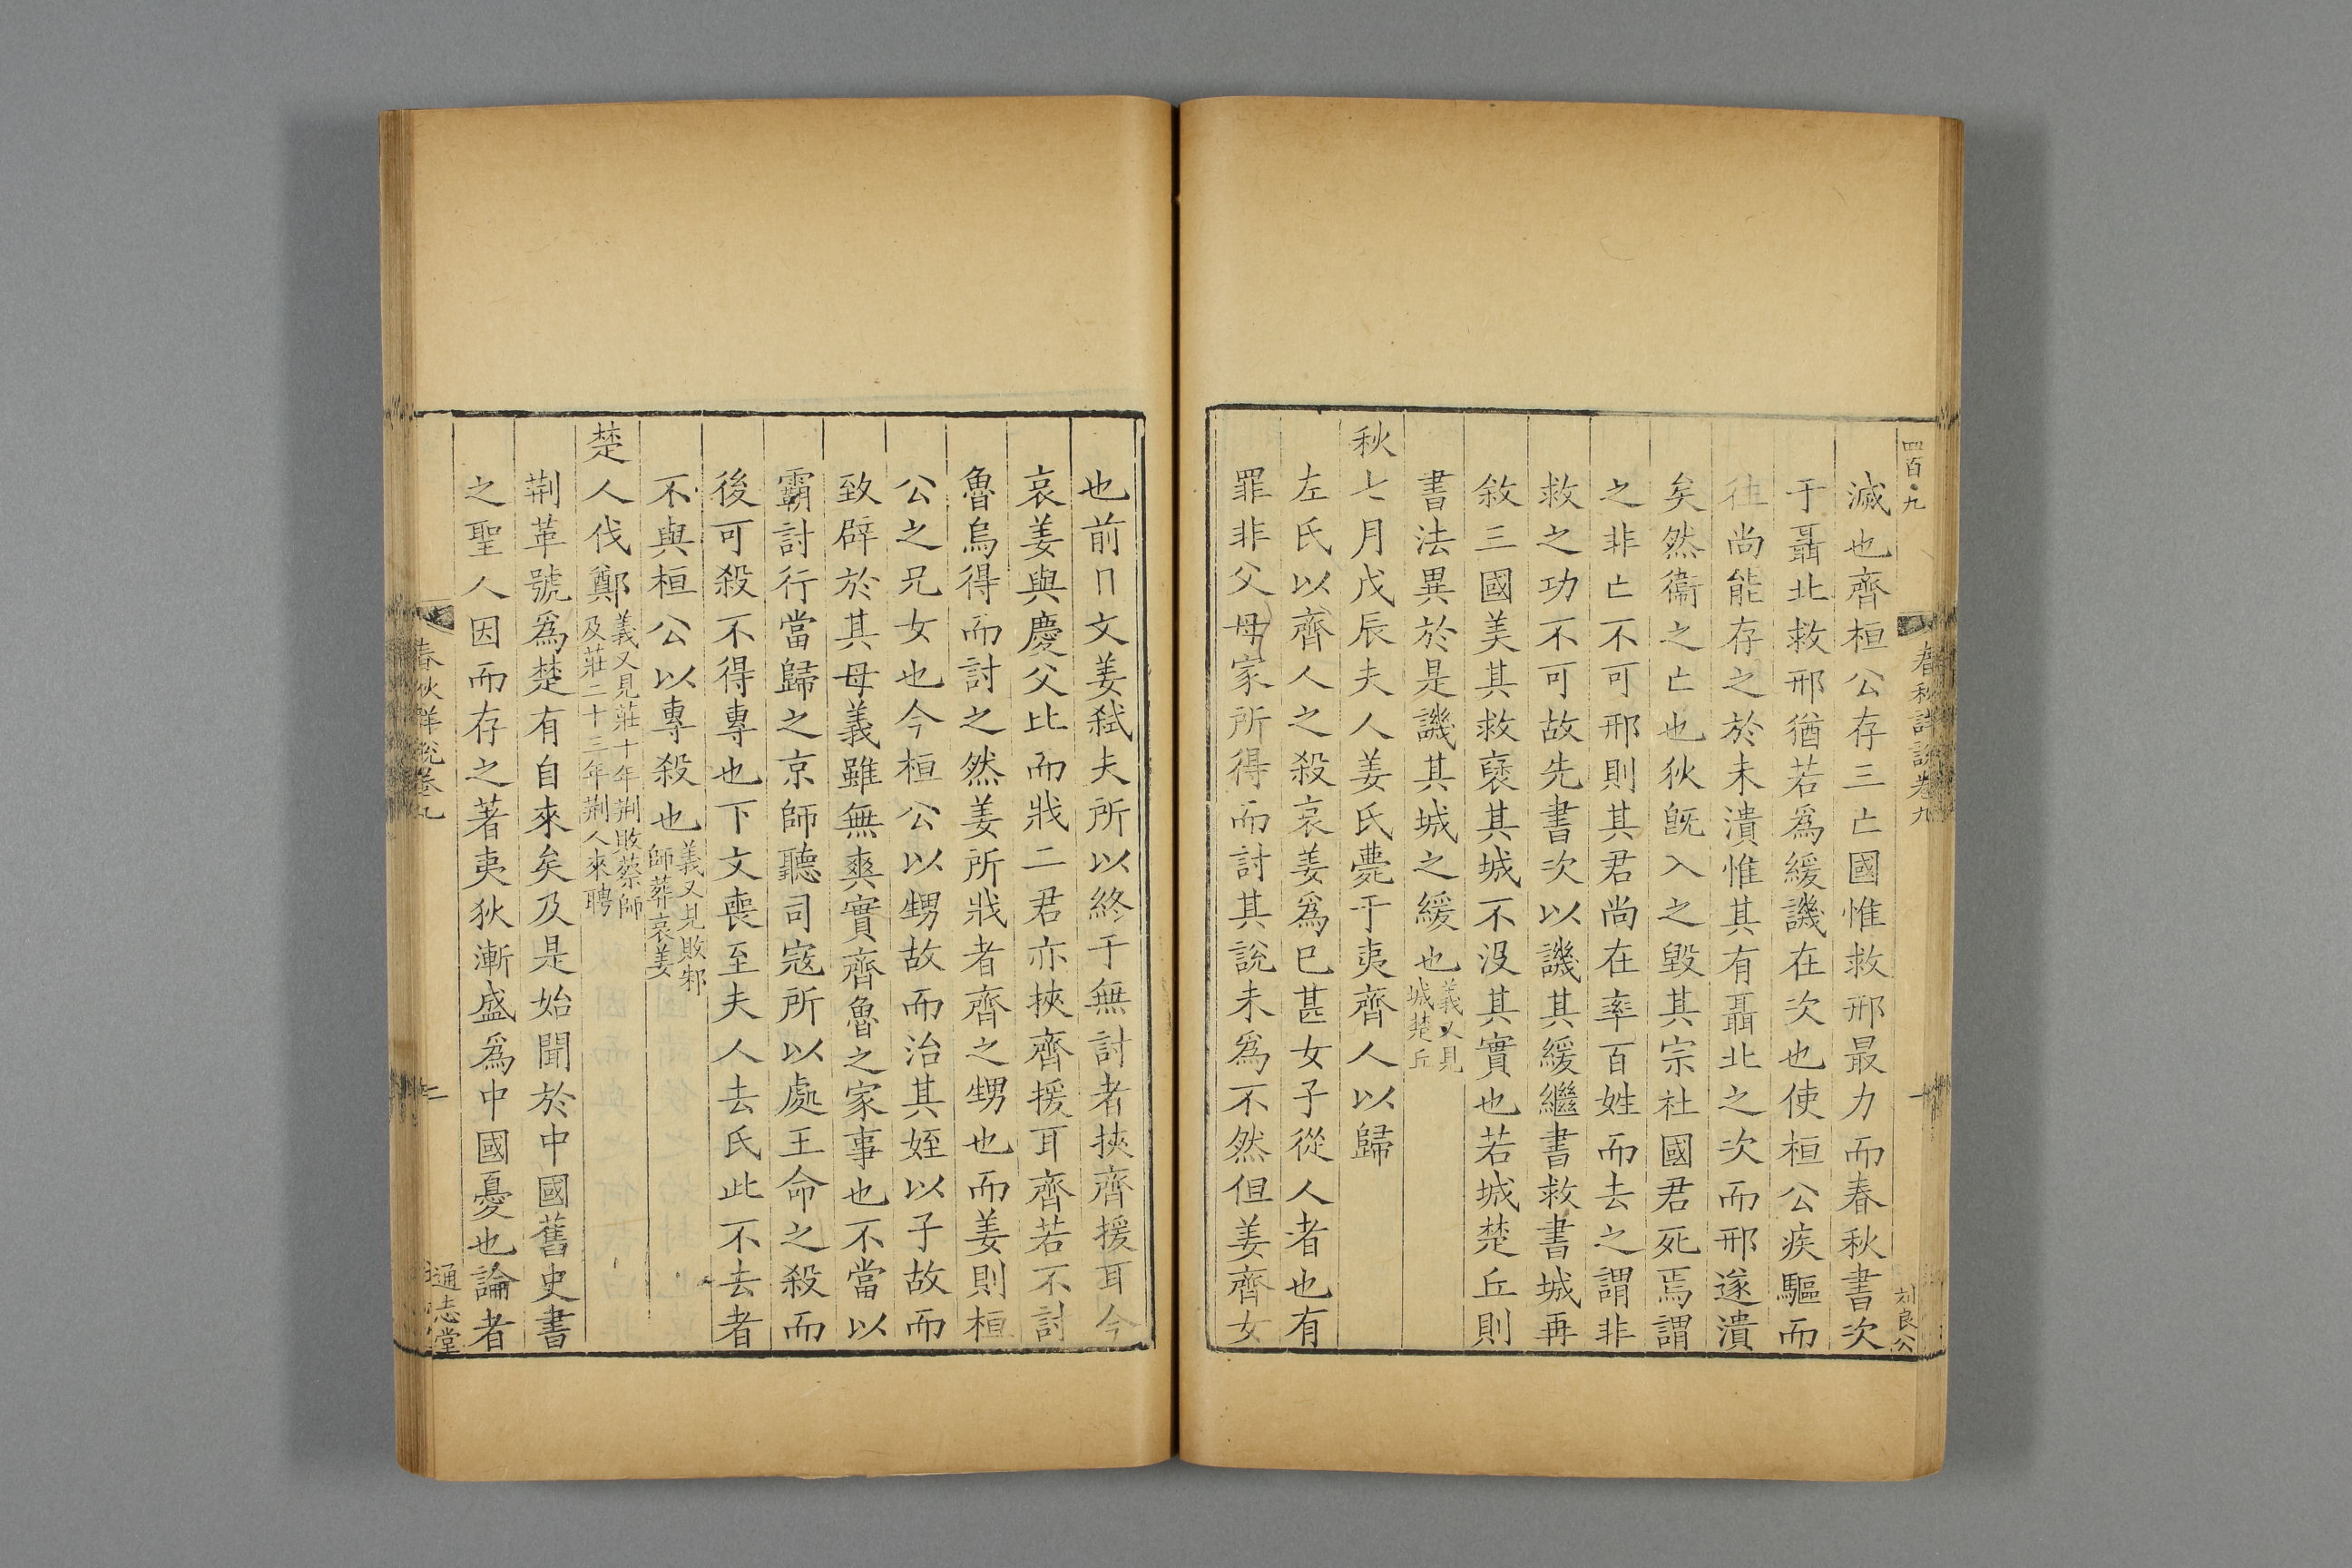 四百九
春秋詳說卷九
一
刘良公
滅也齊桓公存三亡國惟救邢最力而春秋書次
于聶北救邢猶若爲緩譏在次也使桓公疾驅而
往尚能存之於未潰惟其有聶北之次而邢遂潰
矣然衞之亡也狄旣入之毀其宗社國君死焉謂
之非亡不可邢則其君尚在率百姓而去之謂非
救之功不可故先書次以譏其緩繼書救書城再
敘三國美其救襃其城不沒其實也若城楚丘則
書法異於是譏其城之緩也義又見城楚丘
秋七月戊辰夫人姜氏薨于夷齊人以歸
左氏以齊人之殺哀姜爲已甚女子從人者也有
罪非父母家所得而討其說未爲不然但姜齊女
也前日文姜弒夫所以終于無討者挾齊援耳今
哀姜與慶父比而戕二君亦挾齊援耳齊若不討
魯烏得而討之然姜所戕者齊之甥也而姜則桓
公之兄女也今桓公以甥故而治其姪以子故而
致辟於其母義雖無爽實齊魯之家事也不當以
霸討行當歸之京師聽司寇所以處王命之殺而
後可殺不得專也下文喪至夫人去氏此不去者
不與桓公以專殺也義又見敗邾師葬哀姜
楚人伐鄭義又見莊十年荆敗蔡師及莊二十三年荆人來聘
荆革號爲楚有自來矣及是始聞於中國舊史書
之聖人因而存之著夷狄漸盛爲中國憂也論者
春秋詳說卷九
二
通志堂